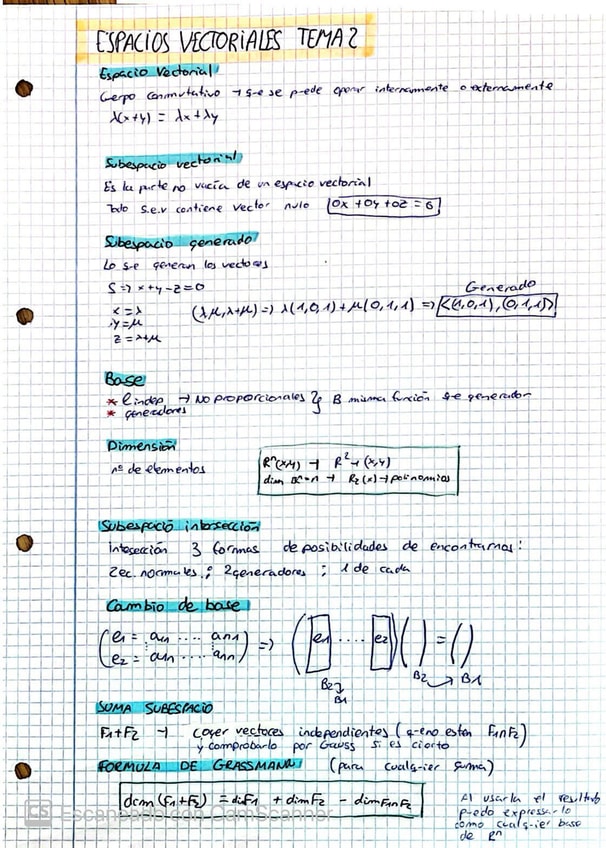 ESPACIOS VECTORIALES TEMA 2
Espacio Vectorial
Cerpo conmutativo → que se puede operar internamente o externamente
λ(x+y) = λx+λy
Subespacio vectorial
Es la parte no vacía de un espacio vectorial
Todo s.e.v contiene vector nulo 0x +0y +0z = 0
Subespacio generado
Lo que generan los vectores
S => x+y-z=0
Generado
x = λ
y = μ
z = λ+μ
(λ,μ,λ+μ) => λ(1,0,1)+μ(0,1,1) => <(1,0,1),(0,1,1)>
Base
* l.indep → No proporcionales } B misma función que generador
* generadores
Dimensión
nº de elementos
Rⁿ(x,y) → R²→(x,y)
dim Rⁿ=n → R₂(x)→polinomios
Subespacio intersección
intersección 3 formas de posibilidades de encontrarnos:
2 ec. normales ; 2 generadores ; 1 de cada
Cambio de base
(e1 = a11 .... an1
e2 = a1n .... ann) => (e1 .... e2) ( ) = ( )
B2 → B1
B2 → B1
SUMA SUBESPACIO
F1+F2 → coger vectores independientes (que no esten F1∩F2)
y comprobarlo por Gauss si es cierto
FORMULA DE GRASSMANN (para cualquier suma)
dim (F1+F2) = dim F1 + dim F2 - dim F1∩F2
Al usarla el resultado
puedo expresarlo
como cualquier base
de Rⁿ
CS Escaneado con CamScanner